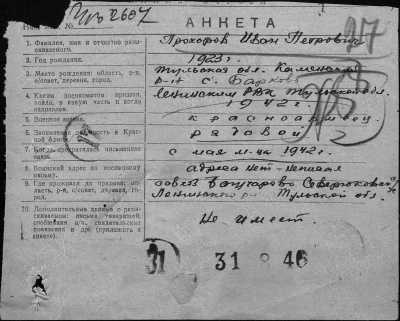 АНКЕТА
1. Фамилия, имя и отчество разыскиваемого. Прохоров Иван Петрович
2. Год рождения. 1923 г.
3. Место рождения: область, р-н, с/совет, деревня, город. Тульская обл. Каменский р-н с.
4. Каким военкоматом призван, когда, в какую часть и когда направлен. Ленинским РВК Тульской обл. 1942 г.
5. Военное звание. красноармеец
6. Занимаемая должность в Красной Армии. рядовой
7. Когда прекратилась письменная связь. с мая м-ца 1942 г.
8. Воинский адрес по последнему письму. адреса нет
9. Где проживал до призыва: область, р-н, с/совет, деревня, город. совхоз Ленинского р-на Тульской обл.
10. Дополнительные данные о разыскиваемом: письма товарищей, сообщения в/ч, свидетельские показания и др. (приложить к анкете). Не имеет.
31 31 8 46